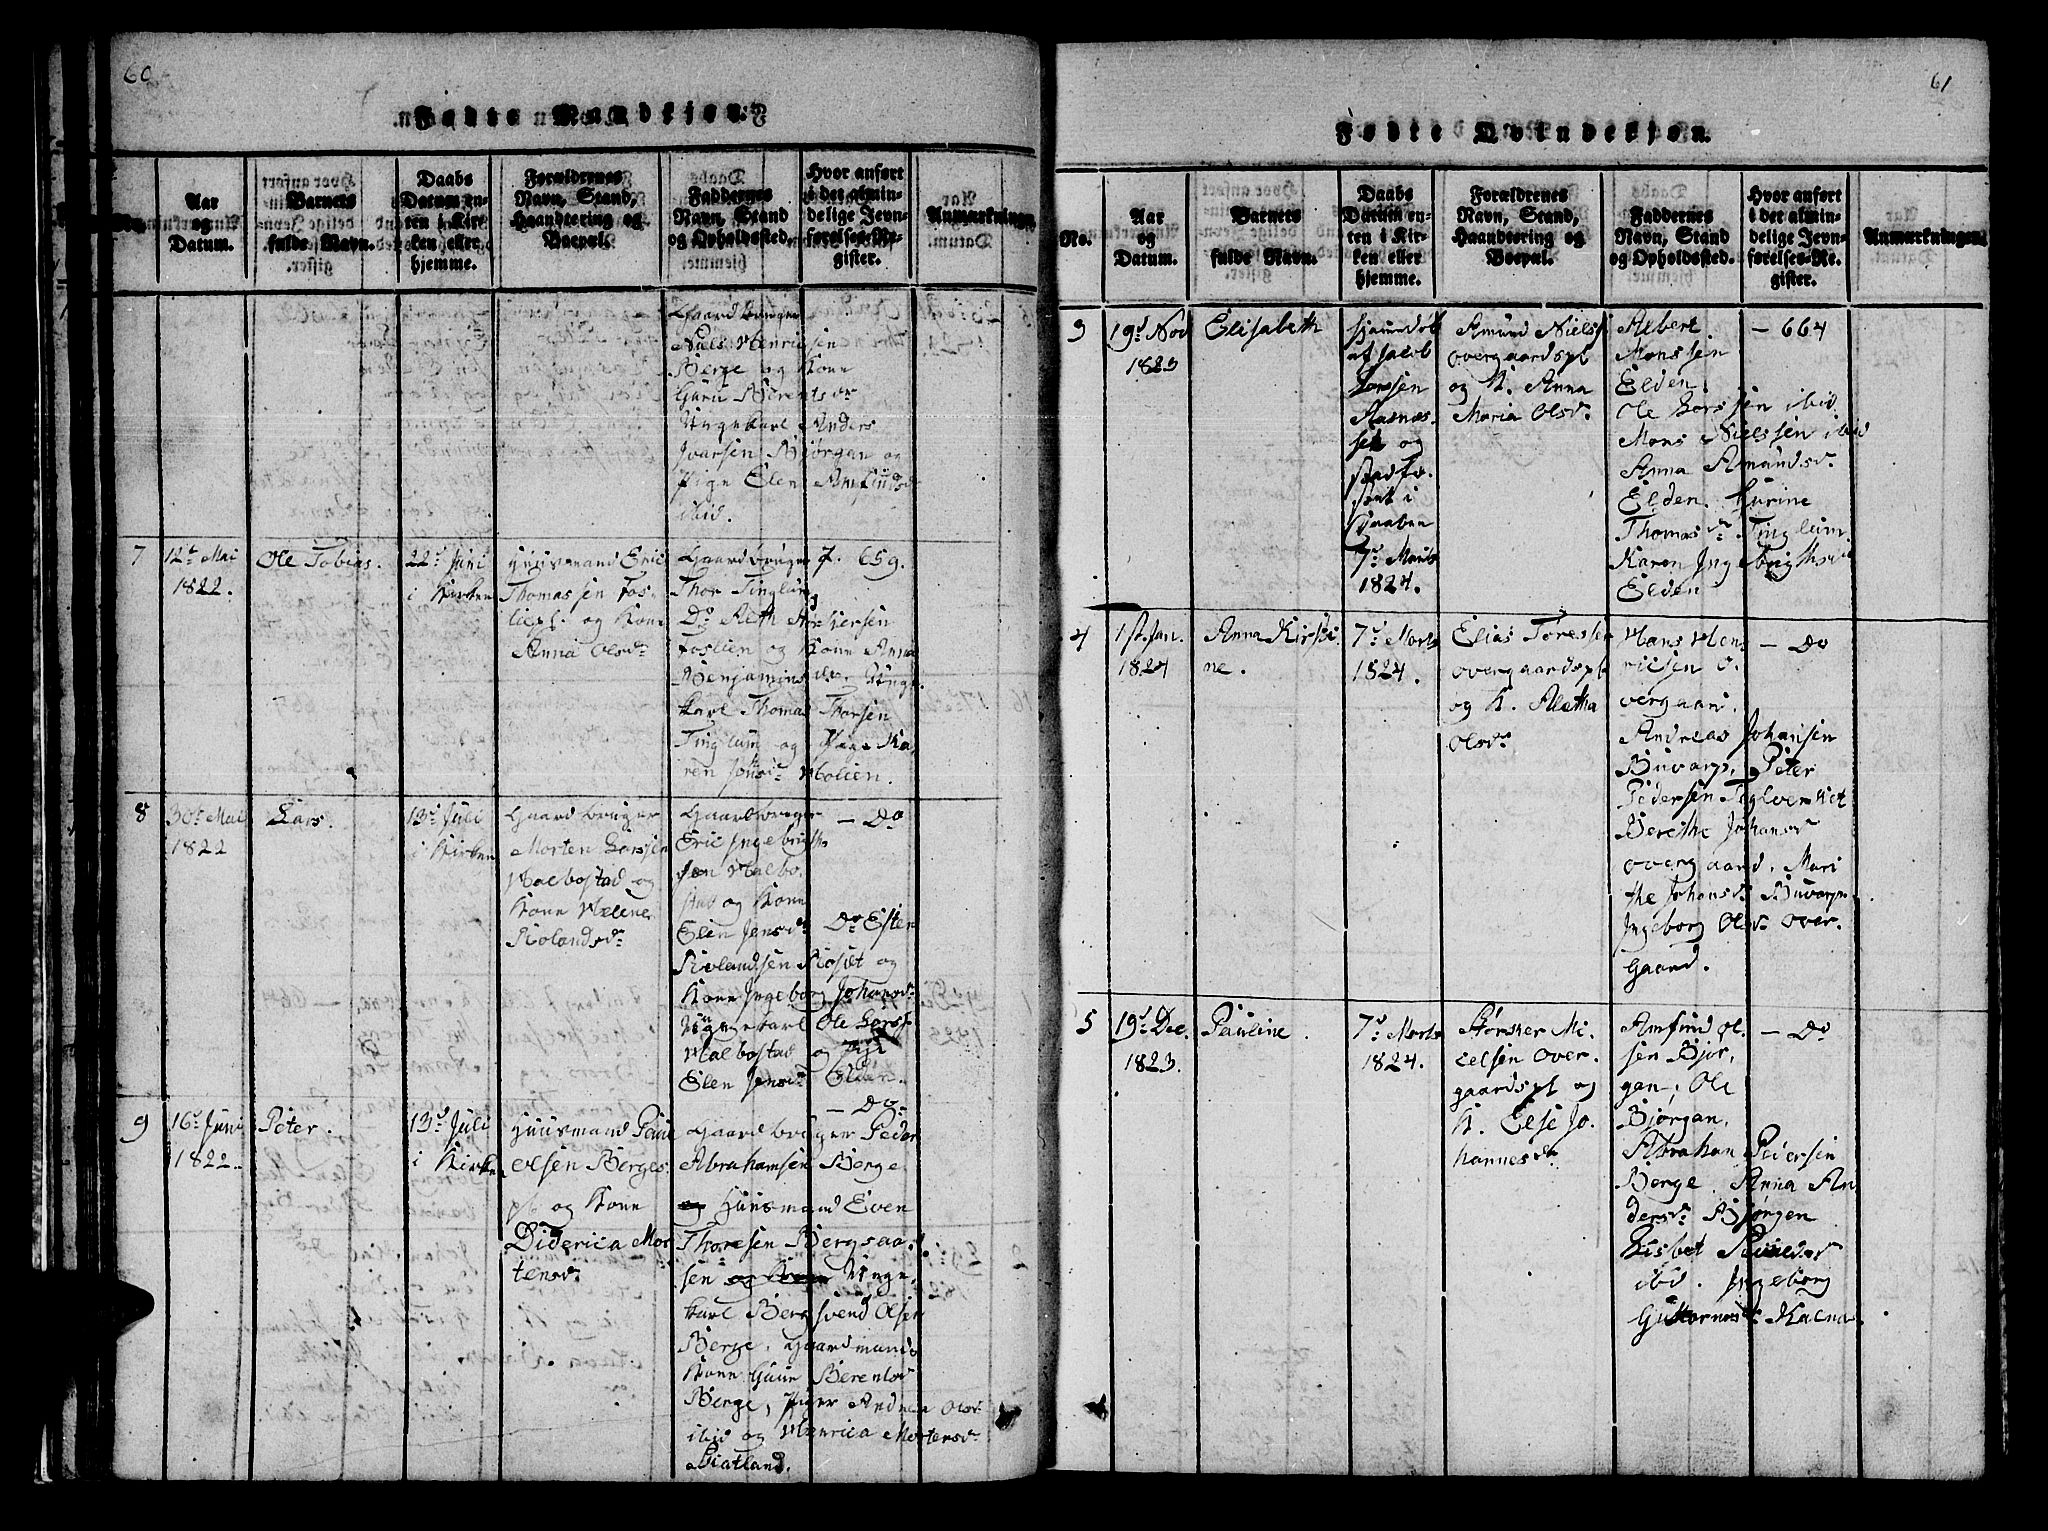 60
Fødte Mandkjøn.
No.
Aar
og
Datum.
Barnets
fulde Navn.
Daabs
Datum en-
ten i Kir-
ken eller
hjemme.
Forældrenes
Navn, Stand,
Haandtering og
Boepæl.
Faddernes
Navn, Stand
og Opholdssted.
Hvor anført
i det almin-
delige Jevn-
førelses-Re-
gister.
Anmærkninger.
Gaardbruger
Niels Henrigsen
Berge og Kone
Guru Berentsdr
Ungekarl Anders
Ivarsen Biørgan og
Pige Elen Amfindsdr
ibid.
7
12te Mai
1822.
Ole Tobias.
22d Juni
i Kirken
Huusmand Eric
Thomassen Fos-
liepl. og Kone
Anna Olsdr
Gaardbruger
Thor Tinglum
Do Areth
Foslien og Kone Anna
Benjaminsdr. Unge-
karl Thomas Thorsen
Tinglum og Pige Ka-
ren Jonsdr Molien.
7. 659.
8
30te Mai
1822
Lars.
13d Juli
i Kirken
Gaardbruger
Morten Larssen
Halbostad og
Kone Helene
Rolandsdr
Gaardbruger
Eric Ingebrigth-
sen Halbo-
stad og Kone
Elen Jensdr Do Esten
Rolandsen Roset og
Kone Ingeborg Johansdr
Ungekarl Ole Larss.
Halbostad og Pige
Elen Jensdr Elden.
— Do
9
16d Juni
1822.
Peter.
13d Juli
i Kirken
Huusmand Paul
Olsen Berges-
pl og Kone
Diderica Mor-
tensdr
— Do
Gaardbruger Peder
Abrahamsen Berge
og Huusmand Even
Thoresen Bergsaa-
sen og Kone Unge-
karl Bersvend Olsen
Berge. Gaardmands
Kone Guru Berentsdr
Berge, Piger Andrea Olsdr
ibid og Henrica Mortensdr
Diatland.
61
Fødte Qvindekjøn.
No.
Aar
og
Datum.
Barnets
fulde Navn.
Daabs
Datum en-
ten i Kir-
ken eller
hjemme.
Forældrenes
Navn, Stand,
Haandtering og
Boepæl.
Faddernes
Navn, Stand
og Opholdssted.
Hvor anført
i det almin-
delige Jevn-
førelses-Re-
gister.
Anmærkninger.
3
19d Nov
1823
Elisabeth
hjemmedøbt
af Jacob
Larssen
Aasnæs-
set og
stadfæ-
stet i
Kirken
7d Marts
1824.
Amund Nielss.
Overgaardspl
og K. Anna
Maria Olsdr.
Albert
Monssen
Elden
Ole Larssen ibid
Mons Nielssen ibid
Anna Amundsdr.
Elden. Gurine
Thomasdr. Tinglum
Karen Ingebrigthsdr
Elden
— 664
4
1st. Jan.
1824
Anna Kirsti-
ne.
7d Marts
1824.
Elias Toressen
Overgaardspl
og K. Aletha
Olsdr
Hans Hen-
ricsen O-
vergaard.
Andreas Johansen
Buvarp, Peter
Pedersen Teglverket
Berethe Johansdr
Overgaard, Mari-
the Johansdr Buvarp.
Ingeborg Olsdr Over-
gaard.
— Do
5
19d Dec.
1823.
Pauline.
7d Marts
1824.
Størcker Mi-
celsen Over-
gaardspl og
K. Else Jo-
hannesdr
Amfind Ol-
sen Bjør-
gan, Ole
Bjørgan,
Abraham Pedersen
Berge. Anna An-
dersdr Bjørgen
Lisbet
ibid. Ingeborg
Guttormsdr Kalnes.
— Do